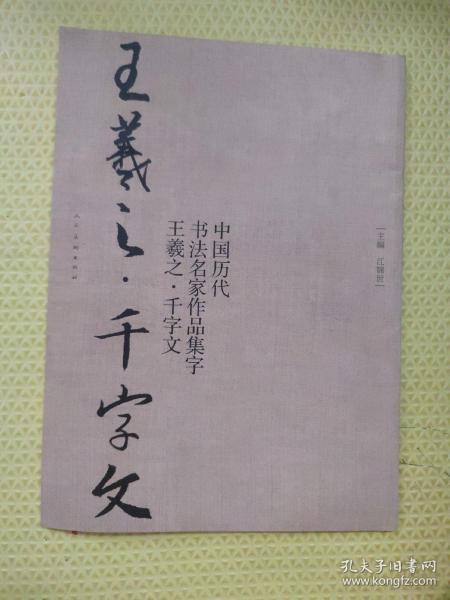 王羲之·千字文
人民美术出版社
中国历代
书法名家作品集字
王羲之·千字文
[主编 江锦世]
孔夫子旧书网
www.kongfz.com